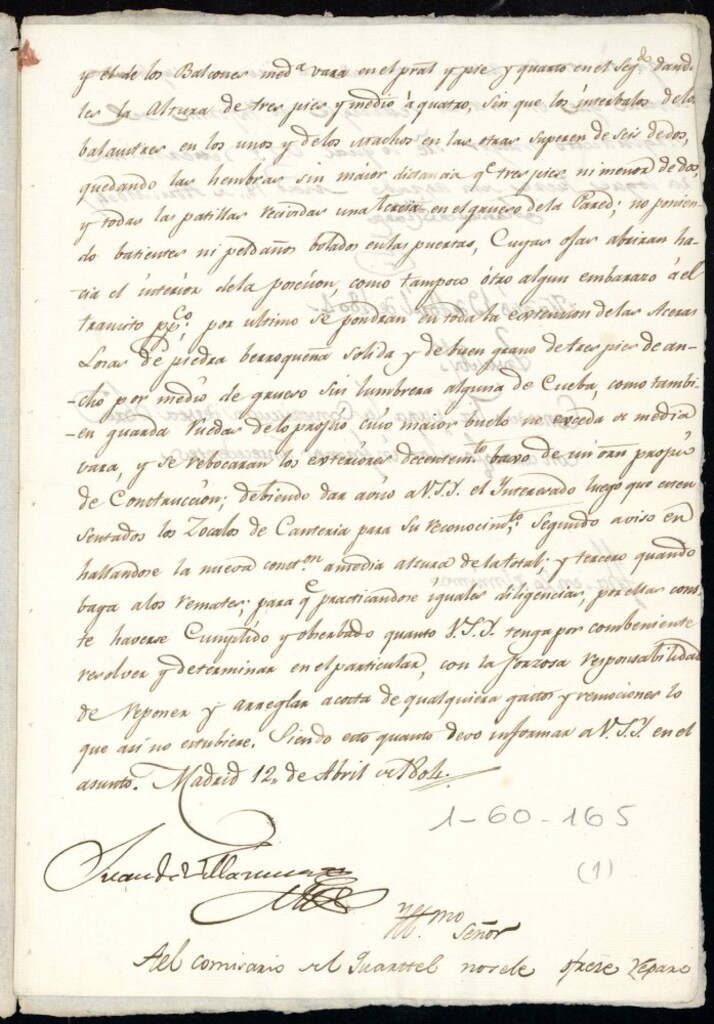 y el de los Balcones med.a vara en el pral y pie y quarto en el seg.do dand.
les la Altura de tres pies y medio à quatro, sin que los interbalos de los
balaustres en los unos y de los machos en las otras superen de seis dedos,
quedando las hembras sin maior distancia q.e tres pies ni menor de dos,
y todas las patillas recividas una tercia en el grueso de la Pared; no ponien-
do batientes ni peldaños bolados en las puertas, Cuyas ojas abriran ha-
cia el interior de la posecion, como tampoco òtro algun embarazo à el
transito pp.co; por ultimo se pondran en toda la extension de las Aceras
Losas de piedra berroqueña solida y de buen grano de tres pies de an-
-cho por medio de grueso sin lumbrera alguna de Cueba, como tambi-
-en guarda ruedas de lo propio cuio maior buelo no exceda de media
vara, y se rebocaran los exteriores decentem.te baxo de un orn propio
de Construccion; debiendo dar aviso a V.S.Y. el Interesado luego que esten
sentados los Zocalos de Canteria para su reconocim.to; Segundo aviso en
hallandose la nueva const.on a media altura de la total; y tercero quando
baga a los remates; para q.e practicandose iguales diligencias, por ellas cons-
te haverse Cumplido y obserbado quanto V.S.Y. tenga por combeniente
resolver y determinar en el particular, con la forzosa responsabilidad
de reponer y arreglar a costa de qualquiera gastos y remociones lo
que asi no estubiere. Siendo esto quanto devo informar a V.S.Y. en el
asunto. Madrid 12, de Abril de 1804.
1-60-165
(1)
Juan de Villanueva
Señor
Ael comisario del Quartel nosele ofrece reparo